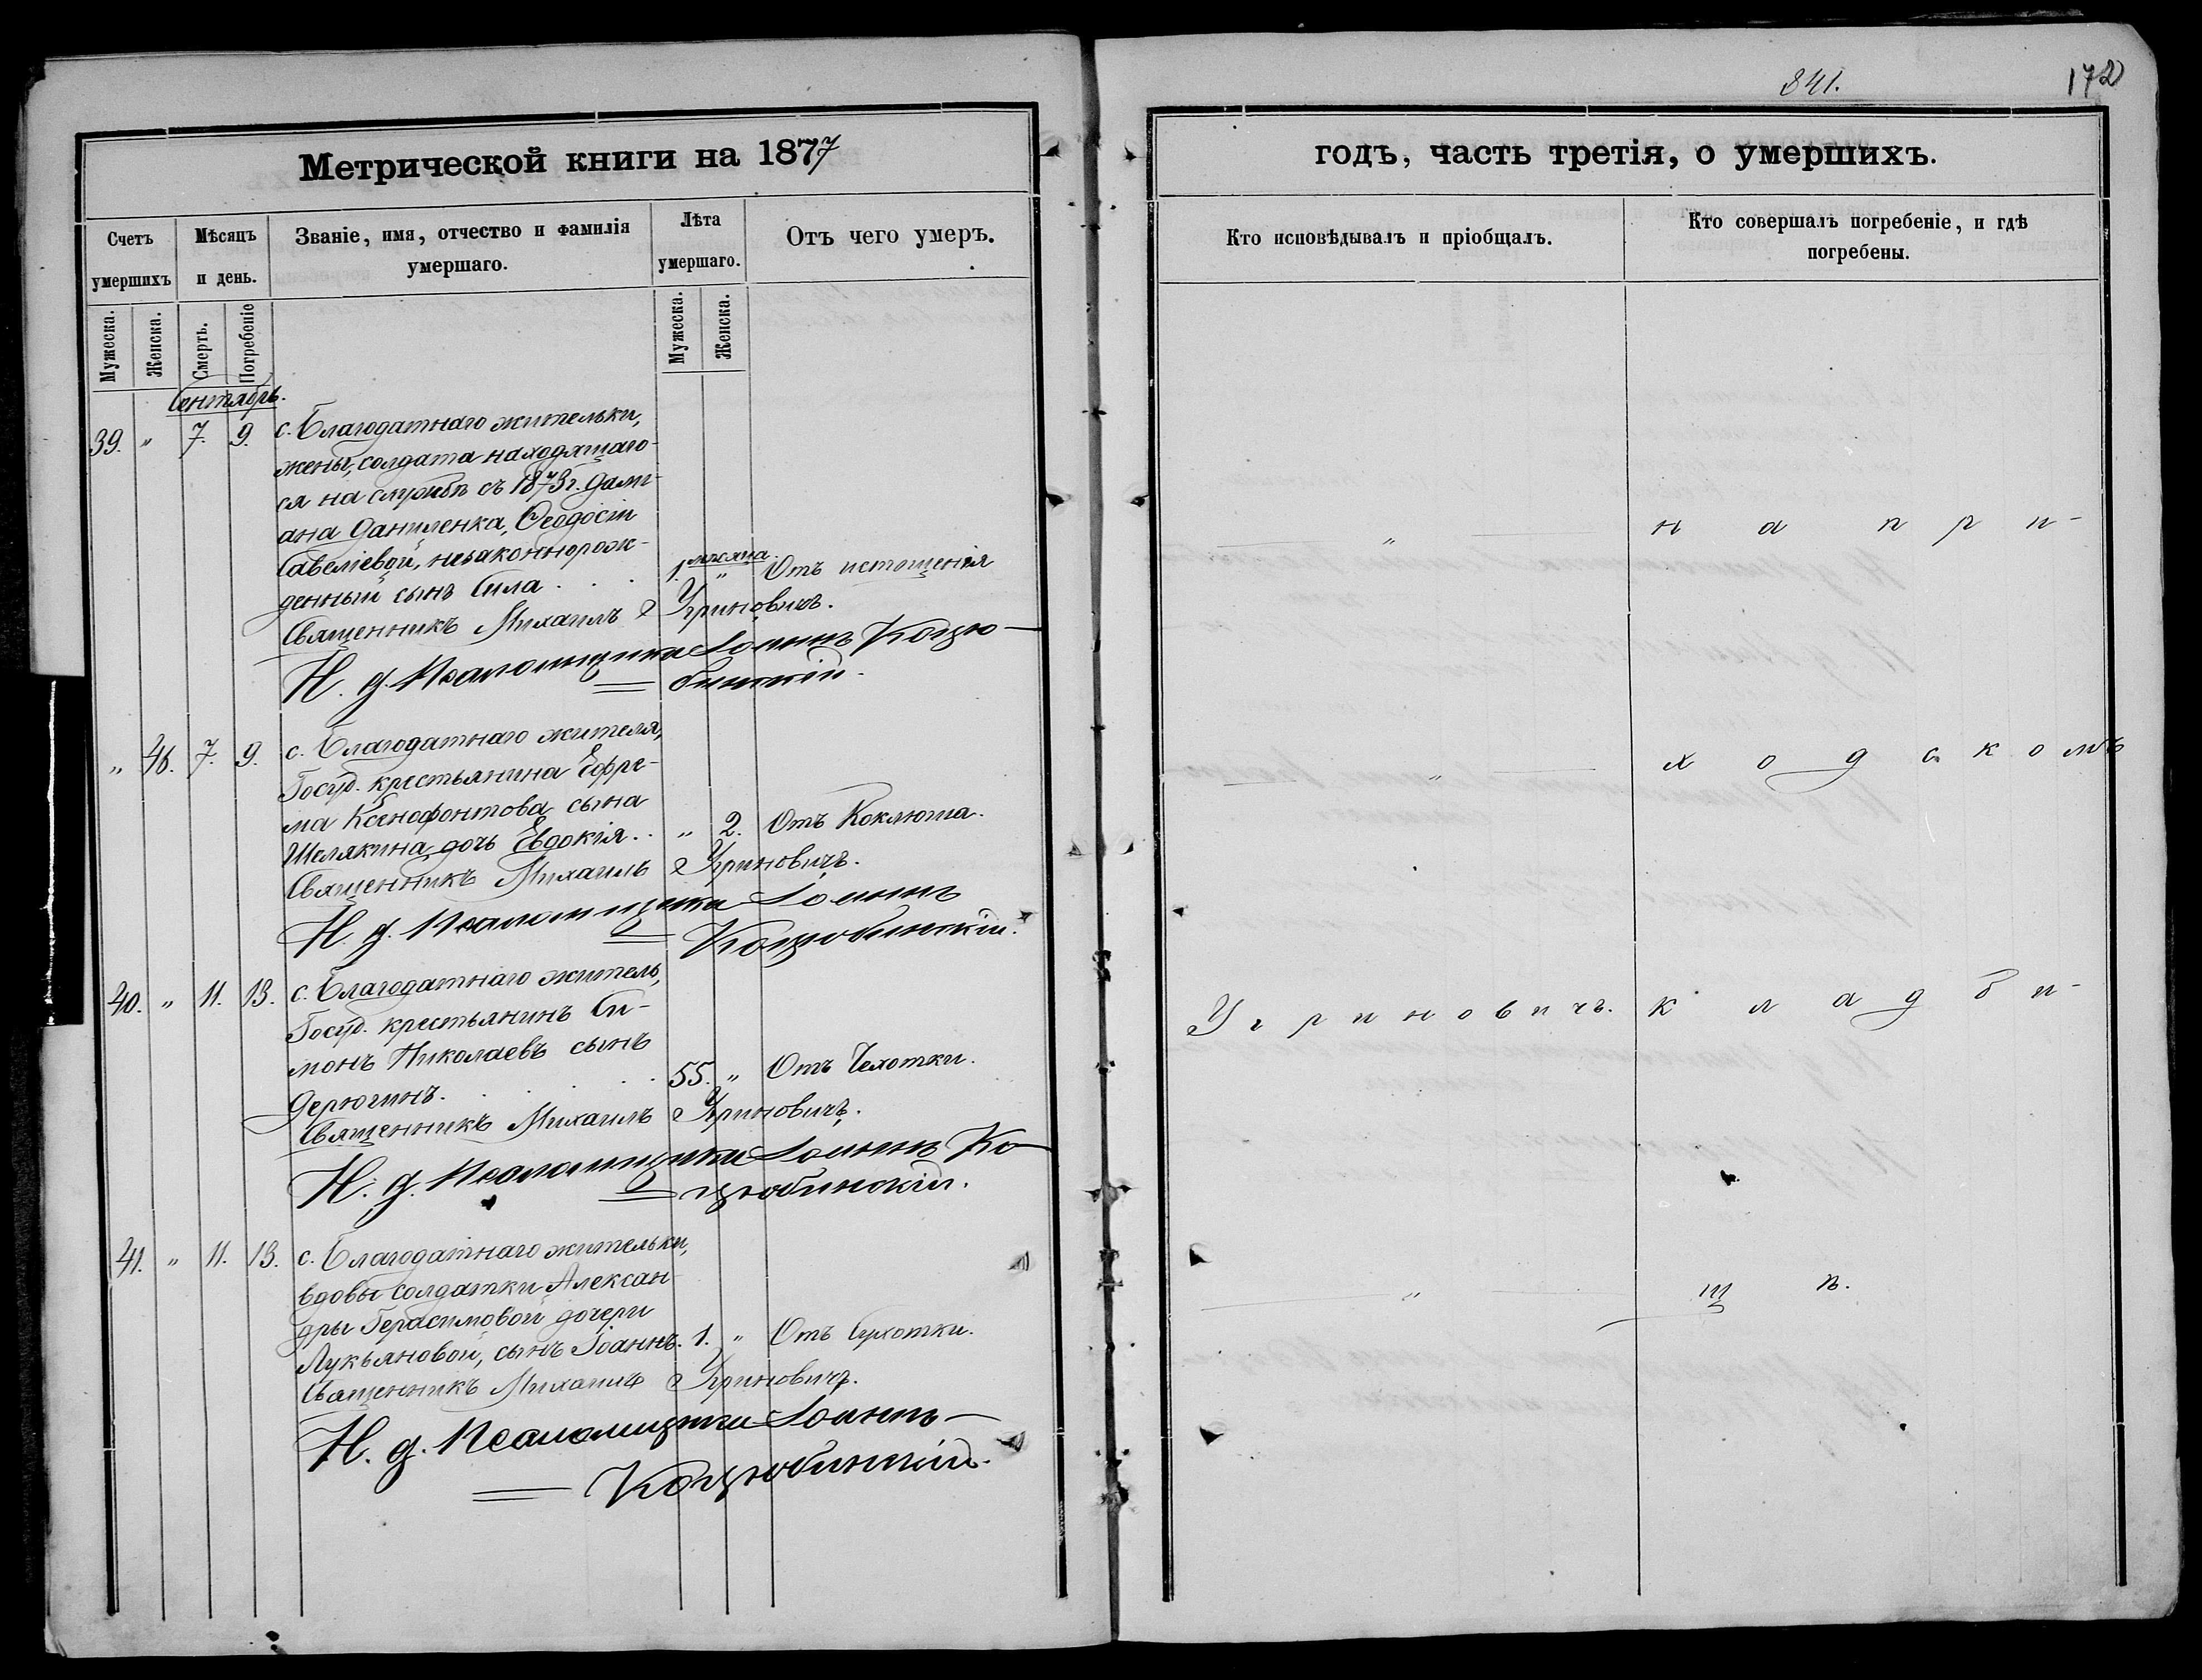 841.
172
Метрической книги на 1877
годъ, часть третія, о умершихъ.
Счетъ умершихъ
Мѣсяцъ и день.
Званіе, имя, отчество и фамилія умершаго.
Лѣта умершаго.
Отъ чего умеръ.
Кто исповѣдывалъ и пріобщалъ.
Кто совершалъ погребеніе, и гдѣ погребены.
Мужеска.
Женска.
Смерть.
Погребеніе
Мужеска.
Женска.
Сентябрь.
39. " 7. 9. с. Благодатнаго жительки,
жены, солдата находящаго-
ся на службѣ съ 1873 г. Дами-
ана Даниленка, Ѳеодосіи
Савеліевой, незаконнорож-
денный сынъ Сила . . . 1. мѣсяца " Отъ истощенія
Священникъ Михаилъ Угриновичъ.
И. д. Псаломщика Іоаннъ Коцю-
бинскій.
" 46. 7. 9. с. Благодатнаго жителя,
Госуд. крестьянина Ефре-
ма Ксенофонтова сына
Шелякина дочь Евдокія . . " 2. Отъ Коклюша.
Священникъ Михаилъ Угриновичъ.
И. д. Псаломщика Іоаннъ
Коцюбинскій.
40. " 11. 13. с. Благодатнаго житель,
Госуд. крестьянинъ Си-
монъ Николаевъ сынъ
Дерюгинъ . . . . 55. " Отъ Чехотки.
Священникъ Михаилъ Угриновичъ.
И. д. Псаломщика Іоаннъ Ко-
цюбинскій.
41. " 11. 13. с. Благодатнаго жительки,
вдовы солдатки Алексан
дры Герасимовой дочери
Лукьяновой, сынъ Іоаннъ. 1. " Отъ Сухотки.
Священникъ Михаилъ Угриновичъ.
И. д. Псаломщика Іоаннъ
Коцюбинскій.
" на при-
" ходскомъ
Угриновичъ. кладби-
" щѣ.